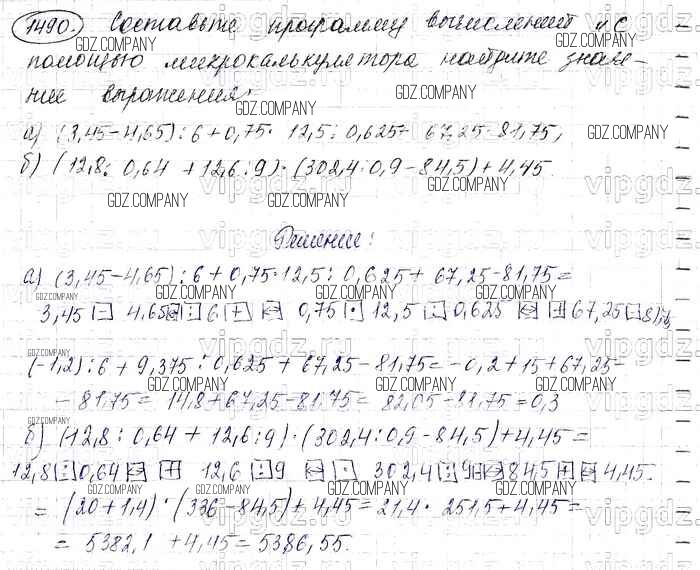 1490. Составьте программу вычислений и с
помощью микрокалькулятора найдите значе-
ние выражения:
а) (3,45-4,65) : 6 + 0,75 · 12,5 : 0,625 + 67,25 - 81,75;
б) (12,8 : 0,64 + 12,6 : 9) · (302,4 : 0,9 - 84,5) + 4,45.
Решение:
а) (3,45-4,65) : 6 + 0,75 · 12,5 : 0,625 + 67,25 - 81,75 =
3,45 - 4,65 = : 6 + = 0,75 · 12,5 : 0,625 = + 67,25 - 81,75
(-1,2) : 6 + 9,375 : 0,625 + 67,25 - 81,75 = -0,2 + 15 + 67,25 -
- 81,75 = 14,8 + 67,25 - 81,75 = 82,05 - 81,75 = 0,3
б) (12,8 : 0,64 + 12,6 : 9) · (302,4 : 0,9 - 84,5) + 4,45 =
12,8 : 0,64 = + 12,6 : 9 = · 302,4 : 9 = 84,5 + = 4,45.
= (20 + 1,4) · (336 - 84,5) + 4,45 = 21,4 · 251,5 + 4,45 =
= 5382,1 + 4,45 = 5386,55.